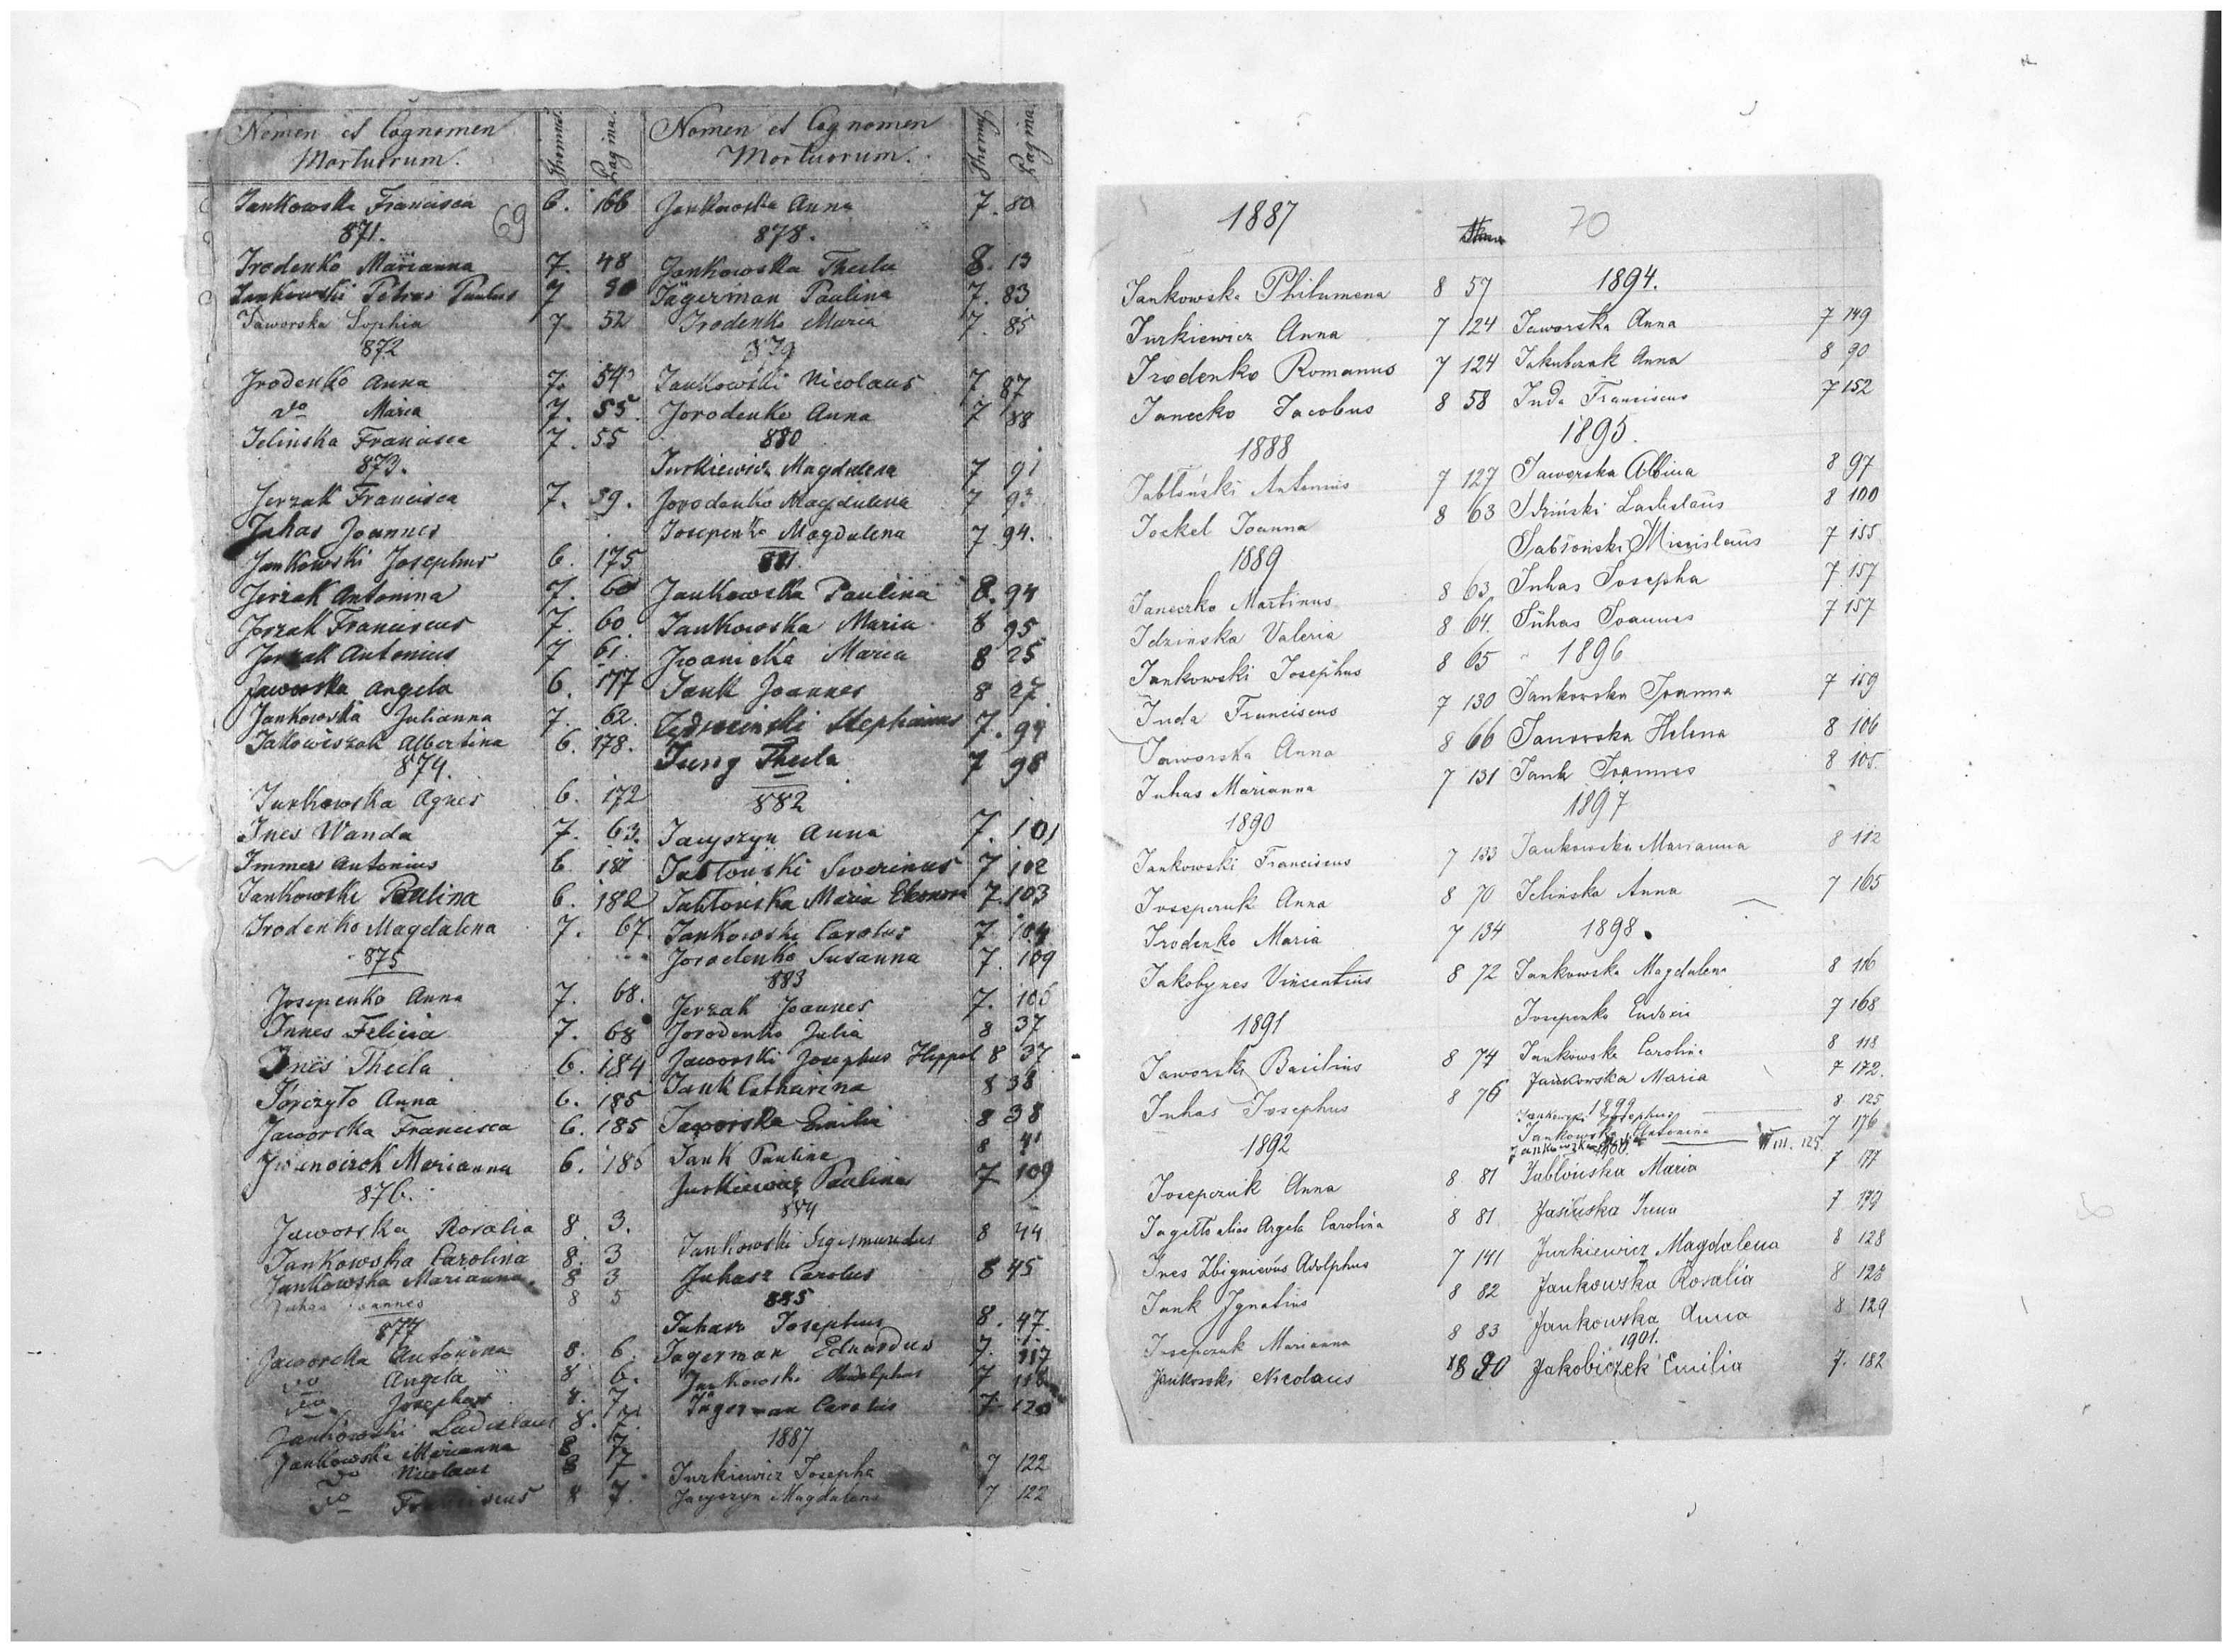 Nomen et Cognomen
Mortuorum.
Thomus
Pagina.
Jankowska Francisca 6. 166
69
871.
Irodenko Marianna 7. 48
Jankowski Petrus Paulus 7
Jaworska Sophia 7 52
872
Irodenko Anna 7. 54
do Maria 7. 55.
Ielinska Francisca 7. 55
873.
Jerzak Francisca 7. 59.
Juhas Joannes
Jankowski Josephus 6. 175
Jerzak Antonina 7. 60
Jerzak Franciscus 7. 60.
Jerzak Antonius 7 61.
Jaworska Angela 6. 177
Jankowska Julianna 7. 62.
Albertina 6. 178.
874.
Jankowska Agnes 6. 172
Ines Wanda 7. 63.
Immer Antonius 6. 181
Jankowska Paulina 6. 182
Irodenko Magdalena 7. 67.
875
Josepenko Anna 7. 68.
Innes Felicia 7. 68
Ines Thecla 6. 184
Anna 6. 185
Jaworska Francisca 6. 185
Marianna 6. 186
876.
Jaworska Rosalia 8. 3.
Jankowska Carolina 8. 3
Jankowska Marianna 8 3
Juhas Joannes 8 5
877
Jaworska Antonina 8. 6.
do Angela 8 6.
do Josephus 8. 7
Jankowski Ladislaus 8. 7.
Jankowska Marianna 8 7
do Nicolaus 8 7
do Franciscus 8 7.
Nomen et Cognomen
Mortuorum.
Thomus
Pagina
Jankowska Anna 7. 80
878.
Jankowska Thecla 8. 13
Jägerman Paulina 7. 83
Irodenko Maria 7. 85
879
Jankowski Nicolaus 7 87
Jorodenko Anna 7 88
880
Jurkiewicz Magdalena 7 91
Jorodenko Magdalena 7 93
Josepenko Magdalena 7 94.
881.
Jankowska Paulina 8. 94
Jankowska Maria 8 95
Iwanicka Maria 8 25
Jank Joannes 8 27
Stephanus 7. 94
Jung Thecla 7 98
882
Jacyszyn Anna 7. 101
Jabłoński Severinus 7 102
Jabłońska Maria Eleonora 7. 103
Jankowski Carolus 7. 104
Jorodenko Susanna 7. 109
883
Jerzak Joannes 7. 106
Jorodenko Julia 8 37
Jaworski Josephus Hippol 8 37
Jank Catharina 8 38
Jaworska Emilia 8 38
Jank Paulina 8 41
Jurkiewicz Paulina 7 109
884
Jankowski Sigismundus 8 44
Juhasz Carolus 8 45
885
Juhasz Josephus 8. 47.
Jagerman Eduardus 7. 117
Jankowski Rudolphus 7 118
Jägerman Carolus 7. 120
1887
Jurkiewicz Josepha 7 122
Jacyszyn Magdalena 7 122
1887
Jankowska Philumena 8 57
Jurkiewicz Anna 7 124
Irodenko Romanus 7 124
Janecko Jacobus 8 58
1888
Jabłoński Antonius 7 127
Jockel Joanna 8 63
1889
Janeczko Martinus 8 63
Idzinska Valeria 8 64.
Jankowski Josephus 8 65
Juda Franciscus 7 130
Jaworska Anna 8 66
Juhas Marianna 7 131
1890
Jankowski Franciscus 7 133
Josepczuk Anna 8 70
Irodenko Maria 7 134
Jakobynes Vincentius 8 72
1891
Jaworski Basilius 8 74
Juhas Josephus 8 76
1892
Josepczuk Anna 8 81
Jagełło alias Argela Carolina 8 81
Ines Zbignievus Adolphus 7 141
Jank Ignatius 8 82
Josepczuk Marianna 8 83
Jankowski Nicolaus 8 90
70
1894.
Jaworska Anna 7 149
Jakubczak Anna 8 90
Juda Franciscus 7 152
1895.
Jaworska Albina 8 97
Idziński Ladislaus 8 100
Jabłoński Miecislaus 7 155
Juhas Josepha 7 157
Juhas Joannes 7 157
1896
Jankowska Joanna 7 159
Jaworska Helena 8 106
Jank Joannes 8 105.
1897
Jankowska Marianna 8 112
Ielinska Anna 7 165
1898.
Jankowska Magdalena 8 116
Josepenko Eudoxia 7 168
Jankowska Carolina 8 118
Jankowska Maria 7 172.
1899
Jankowski Josephus 8 125
Jankowska Antonina 7 176
Jankowska VIII. 125.
1900
Jabłońska Maria 7 177
Jasińska Irena 7 179
Jurkiewicz Magdalena 8 128
Jankowska Rosalia 8 128
Jankowska Anna 8 129
1901.
Jakobiczek Emilia 7. 182